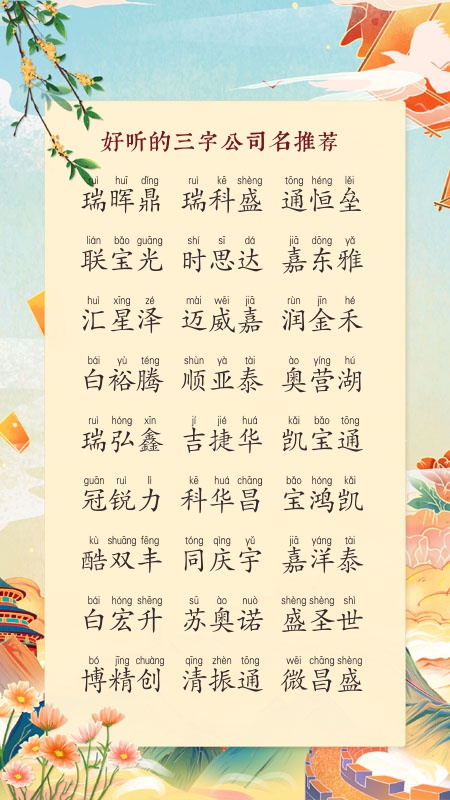 好听的三字公司名推荐
ruì huī dǐng ruì kē shèng tōng héng lěi
瑞晖鼎 瑞科盛 通恒垒
lián bǎo guāng shí sī dá jiā dōng yǎ
联宝光 时思达 嘉东雅
huì xīng zé mài wēi jiā rùn jīn hé
汇星泽 迈威嘉 润金禾
bái yù téng shùn yà tài ào yíng hú
白裕腾 顺亚泰 奥营湖
ruì hóng xīn jí jié huá kǎi bǎo tōng
瑞弘鑫 吉捷华 凯宝通
guān ruì lì kē huá chāng bǎo hóng kǎi
冠锐力 科华昌 宝鸿凯
kù shuāng fēng tóng qìng yǔ jiā yáng tài
酷双丰 同庆宇 嘉洋泰
bái hóng shēng sū ào nuò shèng shèng shì
白宏升 苏奥诺 盛圣世
bó jīng chuàng qīng zhèn tōng wēi chāng shèng
博精创 清振通 微昌盛